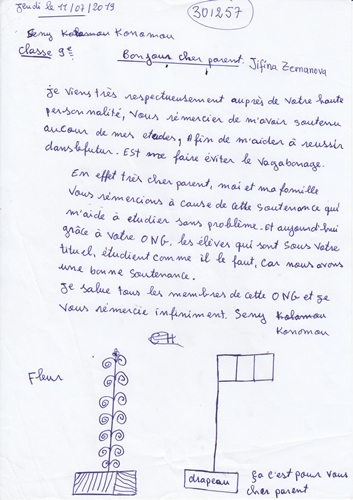 jeudi le 11/07/2019
301257
Seny Kolomou Konomou
Classe 9e
Bonjous cher parent. Jiřina Zemanova
je viens très respectueusement auprès de votre haute
personnalité, vous rémercier de m'avoir soutenu
aucour de mes etudes, Afin de m'aider à reussir
dans le futur. Est me faire éviter le vagabonage.
En effet très cher parent, moi et ma famille
vous rémercions à cause de cette soutenance qui
m'aide à etudier sans problème. et aujourd'hui
grâce à votre ONG. les élèves qui sont sous votre
tituel, étudient comme il le faut, car nous avons
une bonne soutenance.
je salue tous les membres de cette ONG et je
vous rémercie infiniment. Seny Kolomou
Konomou
Fleur
drapeau
ça c'est pour vous
cher parent